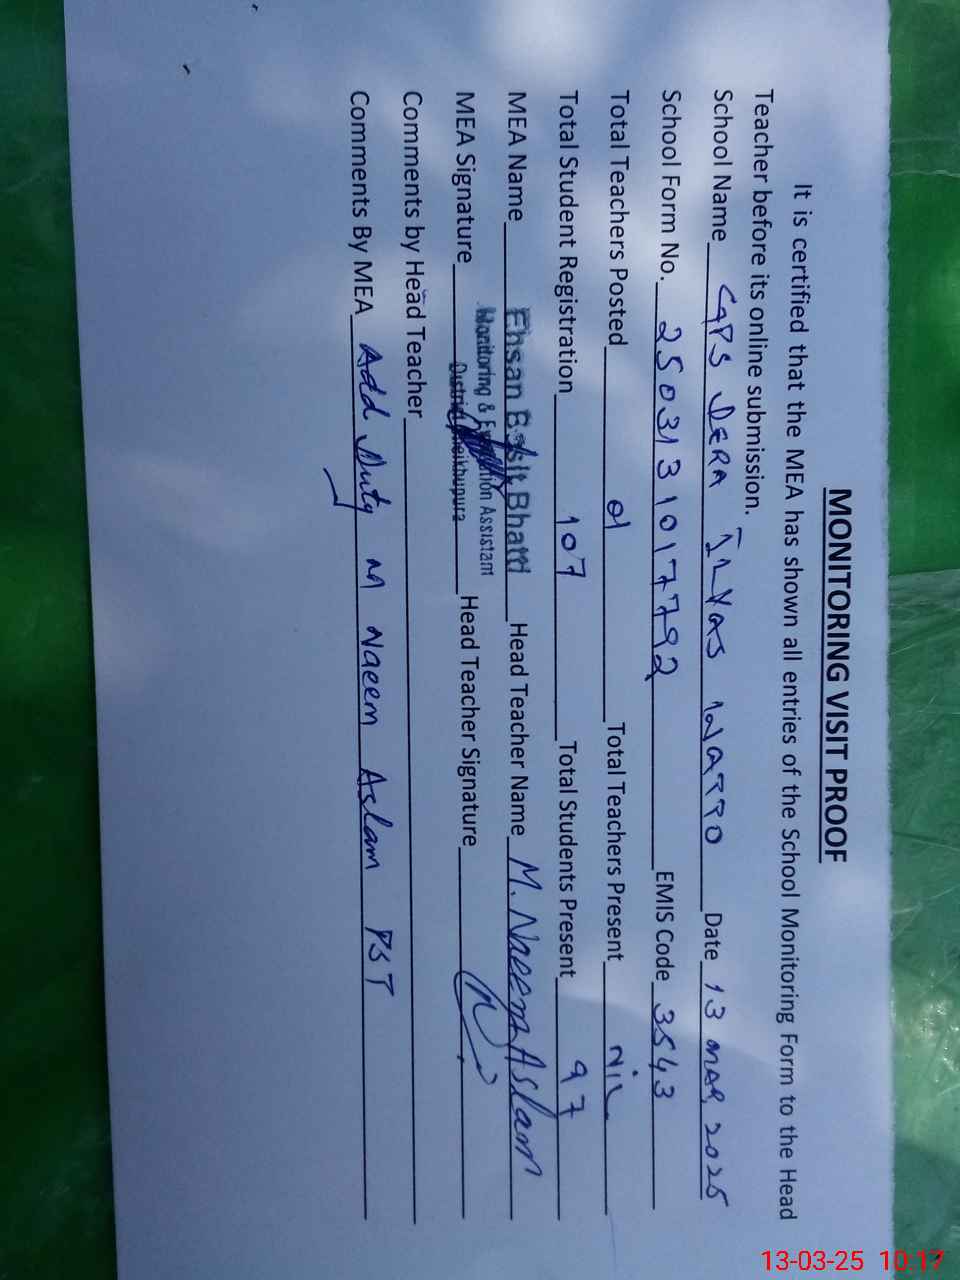 MONITORING VISIT PROOF
It is certified that the MEA has shown all entries of the School Monitoring Form to the Head
Teacher before its online submission.
School Name GPS DERA ILYAS WATTO Date 13 MAR, 2025
School Form No. 2503131017792 EMIS Code 3543
Total Teachers Posted 01 Total Teachers Present NiL
Total Student Registration 107 Total Students Present 97
MEA Name Ehsan Basit Bhatti Head Teacher Name M. Naeem Aslam
Monitoring & Evaluation Assistant
MEA Signature District Sheikhupura Head Teacher Signature
Comments by Head Teacher
Comments By MEA Add Duty M Naeem Aslam PST
13-03-25 10:17